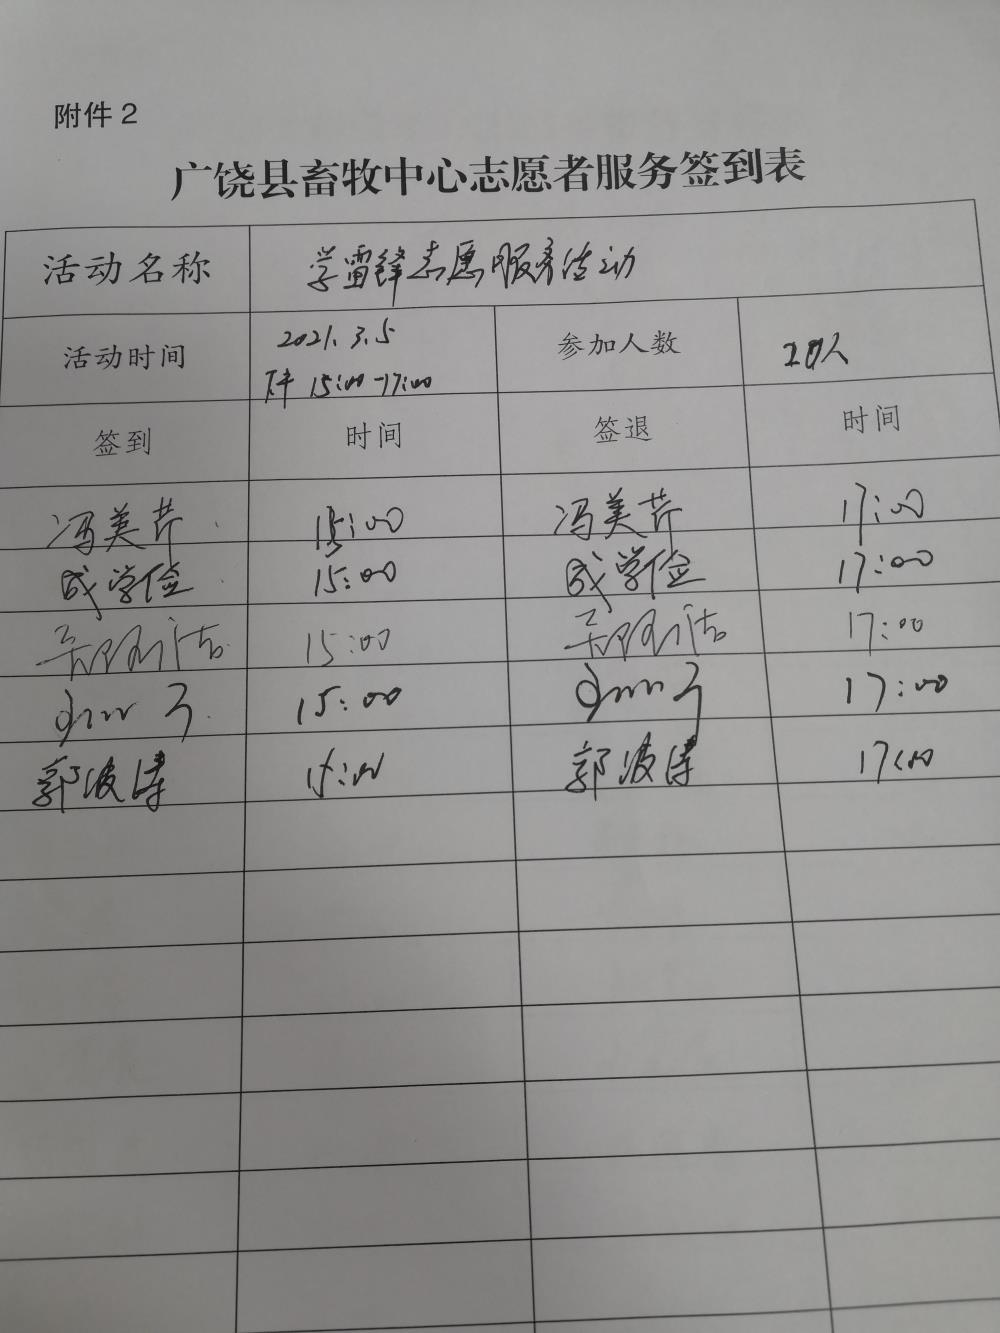 附件2
广饶县畜牧中心志愿者服务签到表
活动名称 学雷锋志愿服务活动
活动时间 2021.3.5 下午 15:00-17:00 参加人数 人
签到 时间 签退 时间
冯美芹 15:00 冯美芹 17:00
成学俭 15:00 成学俭 17:00
15:00 17:00
15:00 17:00
郭波涛 15:00 郭波涛 17:00